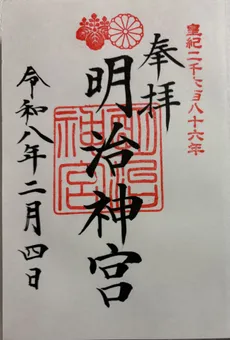 皇紀二千六百八十六年
奉拝
明治神宮
明治神宮
令和八年二月四日